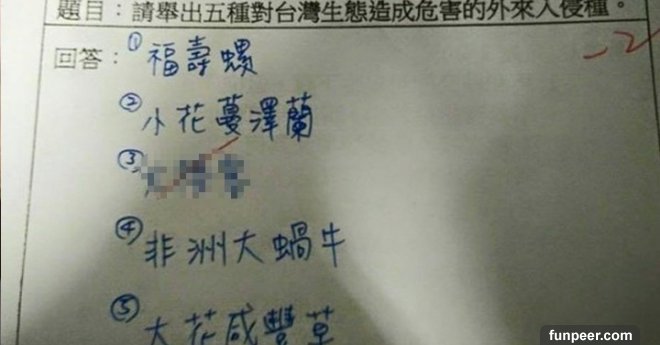 題目：請舉出五種對台灣生態造成危害的外來入侵種。
-2
回答：①福壽螺
②小花蔓澤蘭
③
④非洲大蝸牛
⑤大花咸豐草
funpeer.com